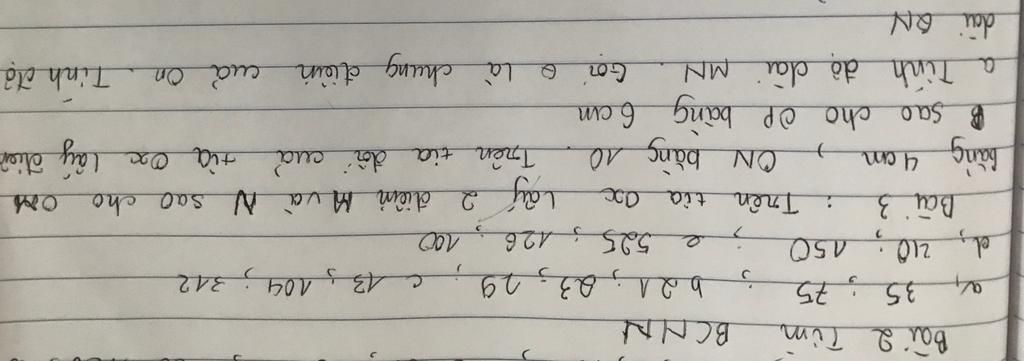 Bài 2 Tìm BCNN
a, 35 ; 75 ; b 21 ; 23 ; 29 ; c 13 ; 104 ; 312
d, 210 ; 150 ; e 525 ; 126 ; 100
Bài 3 : Trên tia Ox Lấy 2 điểm M và N sao cho OM
bằng 4cm , ON bằng 10 . Trên tia đối của tia Ox Lấy điểm
P sao cho OP bằng 6 cm
a Tính độ dài MN . Gọi Q là chung điểm của On . Tính độ
dài QN